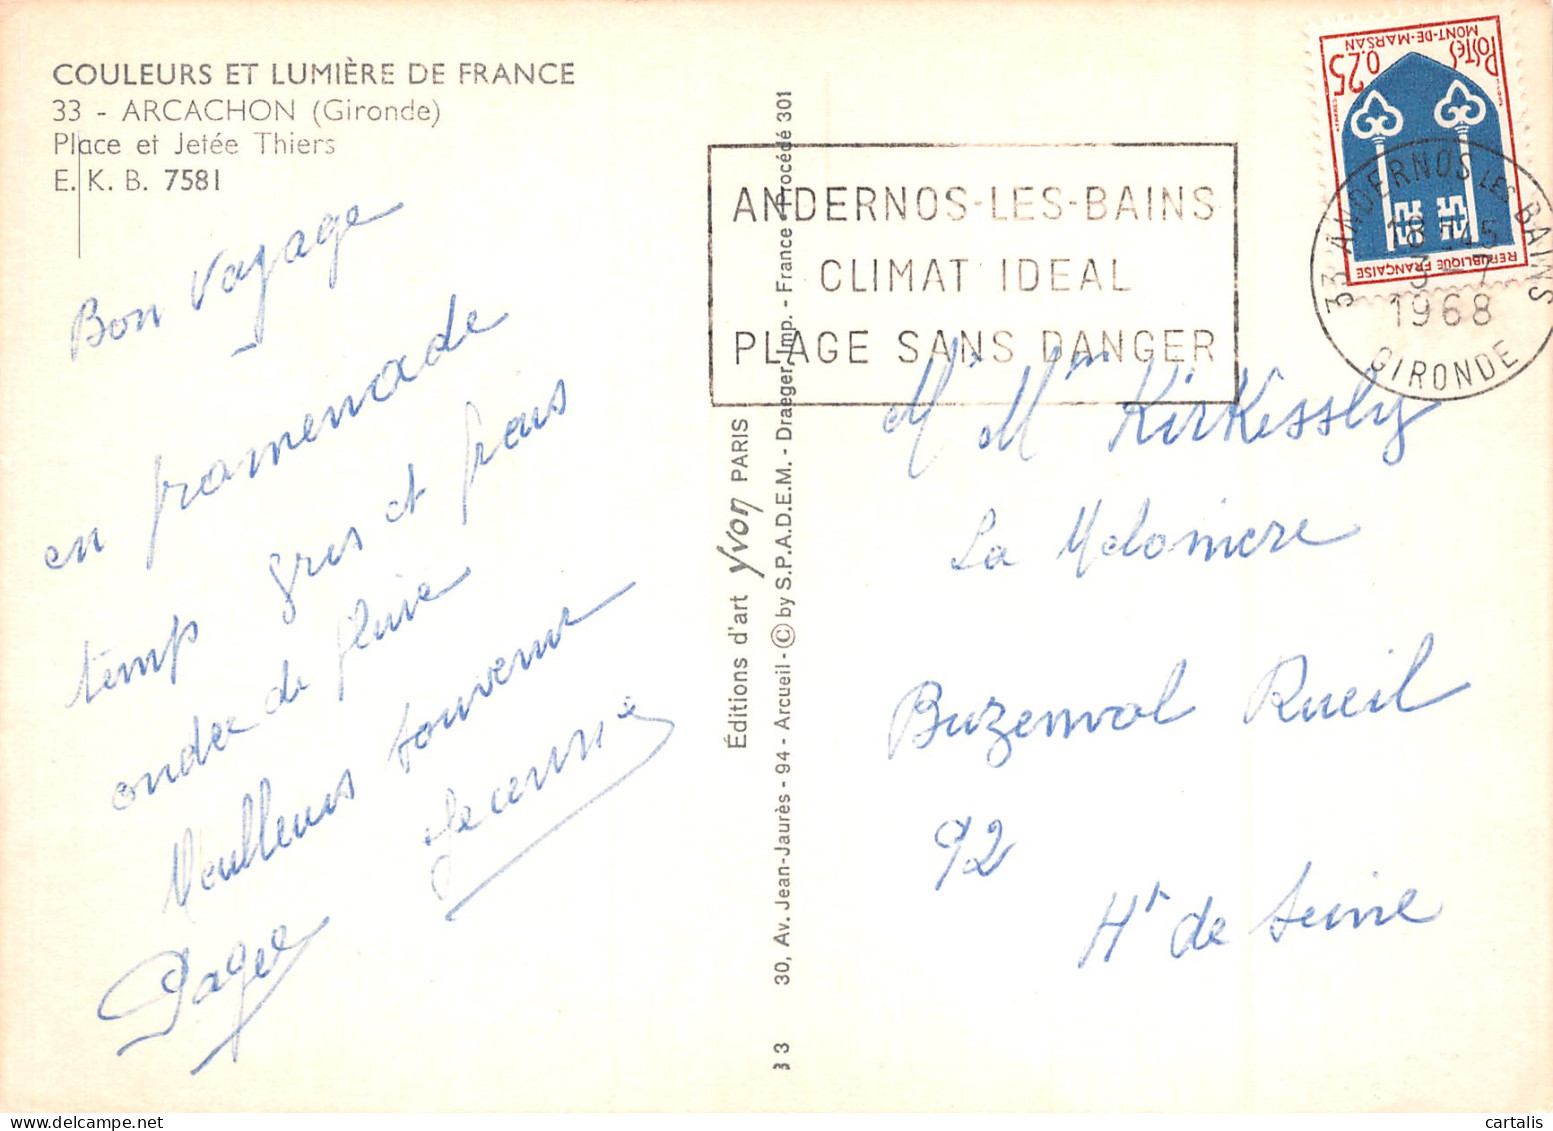 COULEURS ET LUMIÈRE DE FRANCE
33 - ARCACHON (Gironde)
Place et Jetée Thiers
E. K. B. 7581
Bon Voyage
en promenade
temps gris et frais
ondée de pluie
Meilleurs souvenir
Éditions d'art yvon PARIS
30, Av. Jean-Jaurès - 94 - Arcueil - © by S.P.A.D.E.M. - Draeger, Imp. - France - Procédé 301
33
ANDERNOS-LES-BAINS
CLIMAT IDEAL
PLAGE SANS DANGER
POSTES 0,25
MONT-DE-MARSAN
REPUBLIQUE FRANÇAISE
33 ANDERNOS LES BAINS
18H45
3-7
1968
GIRONDE
Mr Mme Kirkessly
La Malomière
Buzenval Rueil
92
Ht de Seine
cartalis